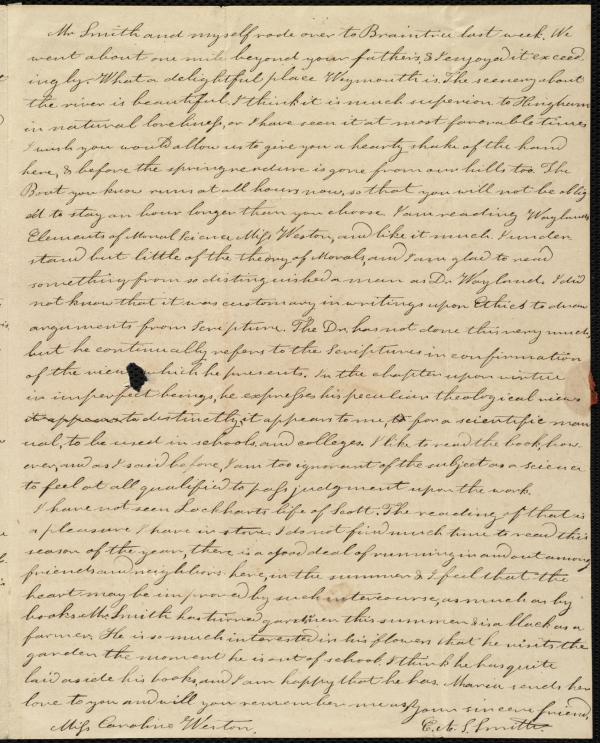 Mr Smith and myself rode over to Braintree last week. We
went about one mile beyond your father's, & I enjoyed it exceed-
ingly. What a delightful place Weymouth is. The scenery about
the river is beautiful. I think it is much superior to Hingham
in natural loveliness, or I have seen it at most favorable times
I wish you would allow us to give you a hearty shake of the hand
here, & before the spring verdure is gone from our hills too. The
Boat you know runs at all hours now, so that you will not be oblig
ed to stay an hour longer than you choose. I am reading Wayland's
Elements of Moral Science Miss Weston, and like it much. I under
stand but little of the theory of Morals, and I am glad to read
something from so distinguished a man as Dr Wayland. I did
not know that it was customary in writings upon Ethics to draw
arguments from Scripture. The Dr has not done this very much,
but he continually refers to the Scriptures in confirmation
of the views which he presents. In the chapter upon virtue
in imperfect beings, he expresses his peculiar theological views
it appears to distinctly, it appears to me, for a scientific man
ual, to be used in schools, and colleges. I like to read the book, how
ever, and as I said before, I am too ignorant of the subject as a science
to feel at all qualified to pass judgment upon the work.
I have not seen Lockharts life of Scott. The reading of that is
a pleasure I have in store. I do not find much time to read this
season of the year, there is a good deal of running in and out among
friends and neighbors here, in the summer & I feel that the
heart may be improved by such intercourse, as much as by
books. Mr Smith has turned gardiner this summer & is a black as a
farmer. He is so much interested in his flowers that he visits the
garden the moment he is out of school. I think he has quite
laid aside his books, and I am happy that he has. Maria sends her
love to you and will you remember me as your sincere friend,
Miss Caroline Weston. C. A. S. Smith.